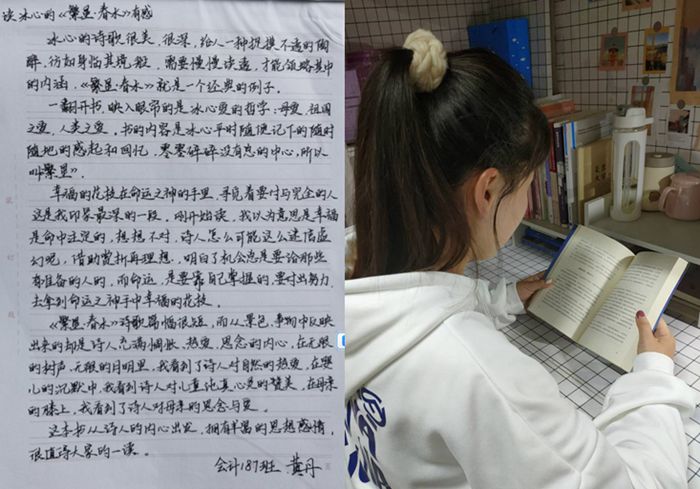 读冰心的《繁星·春水》有感
冰心的诗歌很美,很深,给人一种捉摸不透的陶
醉,仿如身临其境般,需要慢慢读透,才能领略其中
的内涵,《繁星·春水》就是一个经典的例子。
一翻开书,映入眼帘的是冰心爱的哲学:母爱,祖国
之爱,人类之爱。书的内容是冰心平时随便记下的随时
随地的感起和回忆,零零碎碎没有忘的中心,所以
叫繁星》。
幸福的花枝在命运之神的手里,寻觅着要付与完全的人
这是我印象最深的一段。刚开始读,我以为意思是幸福
是命中注定的,想想不对,诗人怎么可能这么迷信虚
幻呢,借助赏析再理想,明白了机会总是要给那些
有准备的人的,而命运,是要靠自己掌握的,要付出努力,
去拿到命运之神手中幸福的花枝。
《繁星·春水》诗歌篇幅很短,而从景色、事物中反映
出来的却是诗人充满惆怅、热爱、思念的内心,在无限
的树声,无限的月明里,我看到了诗人对自然的热爱,在婴
儿的沉默中,我看到诗人对儿童纯真心灵的赞美,在母亲
的膝上,我看到了诗人对母亲的思念与爱。
这本书从诗人的内心出发,拥有丰富的思想感情,
很值得大家的一读。
会计187班 黄丹